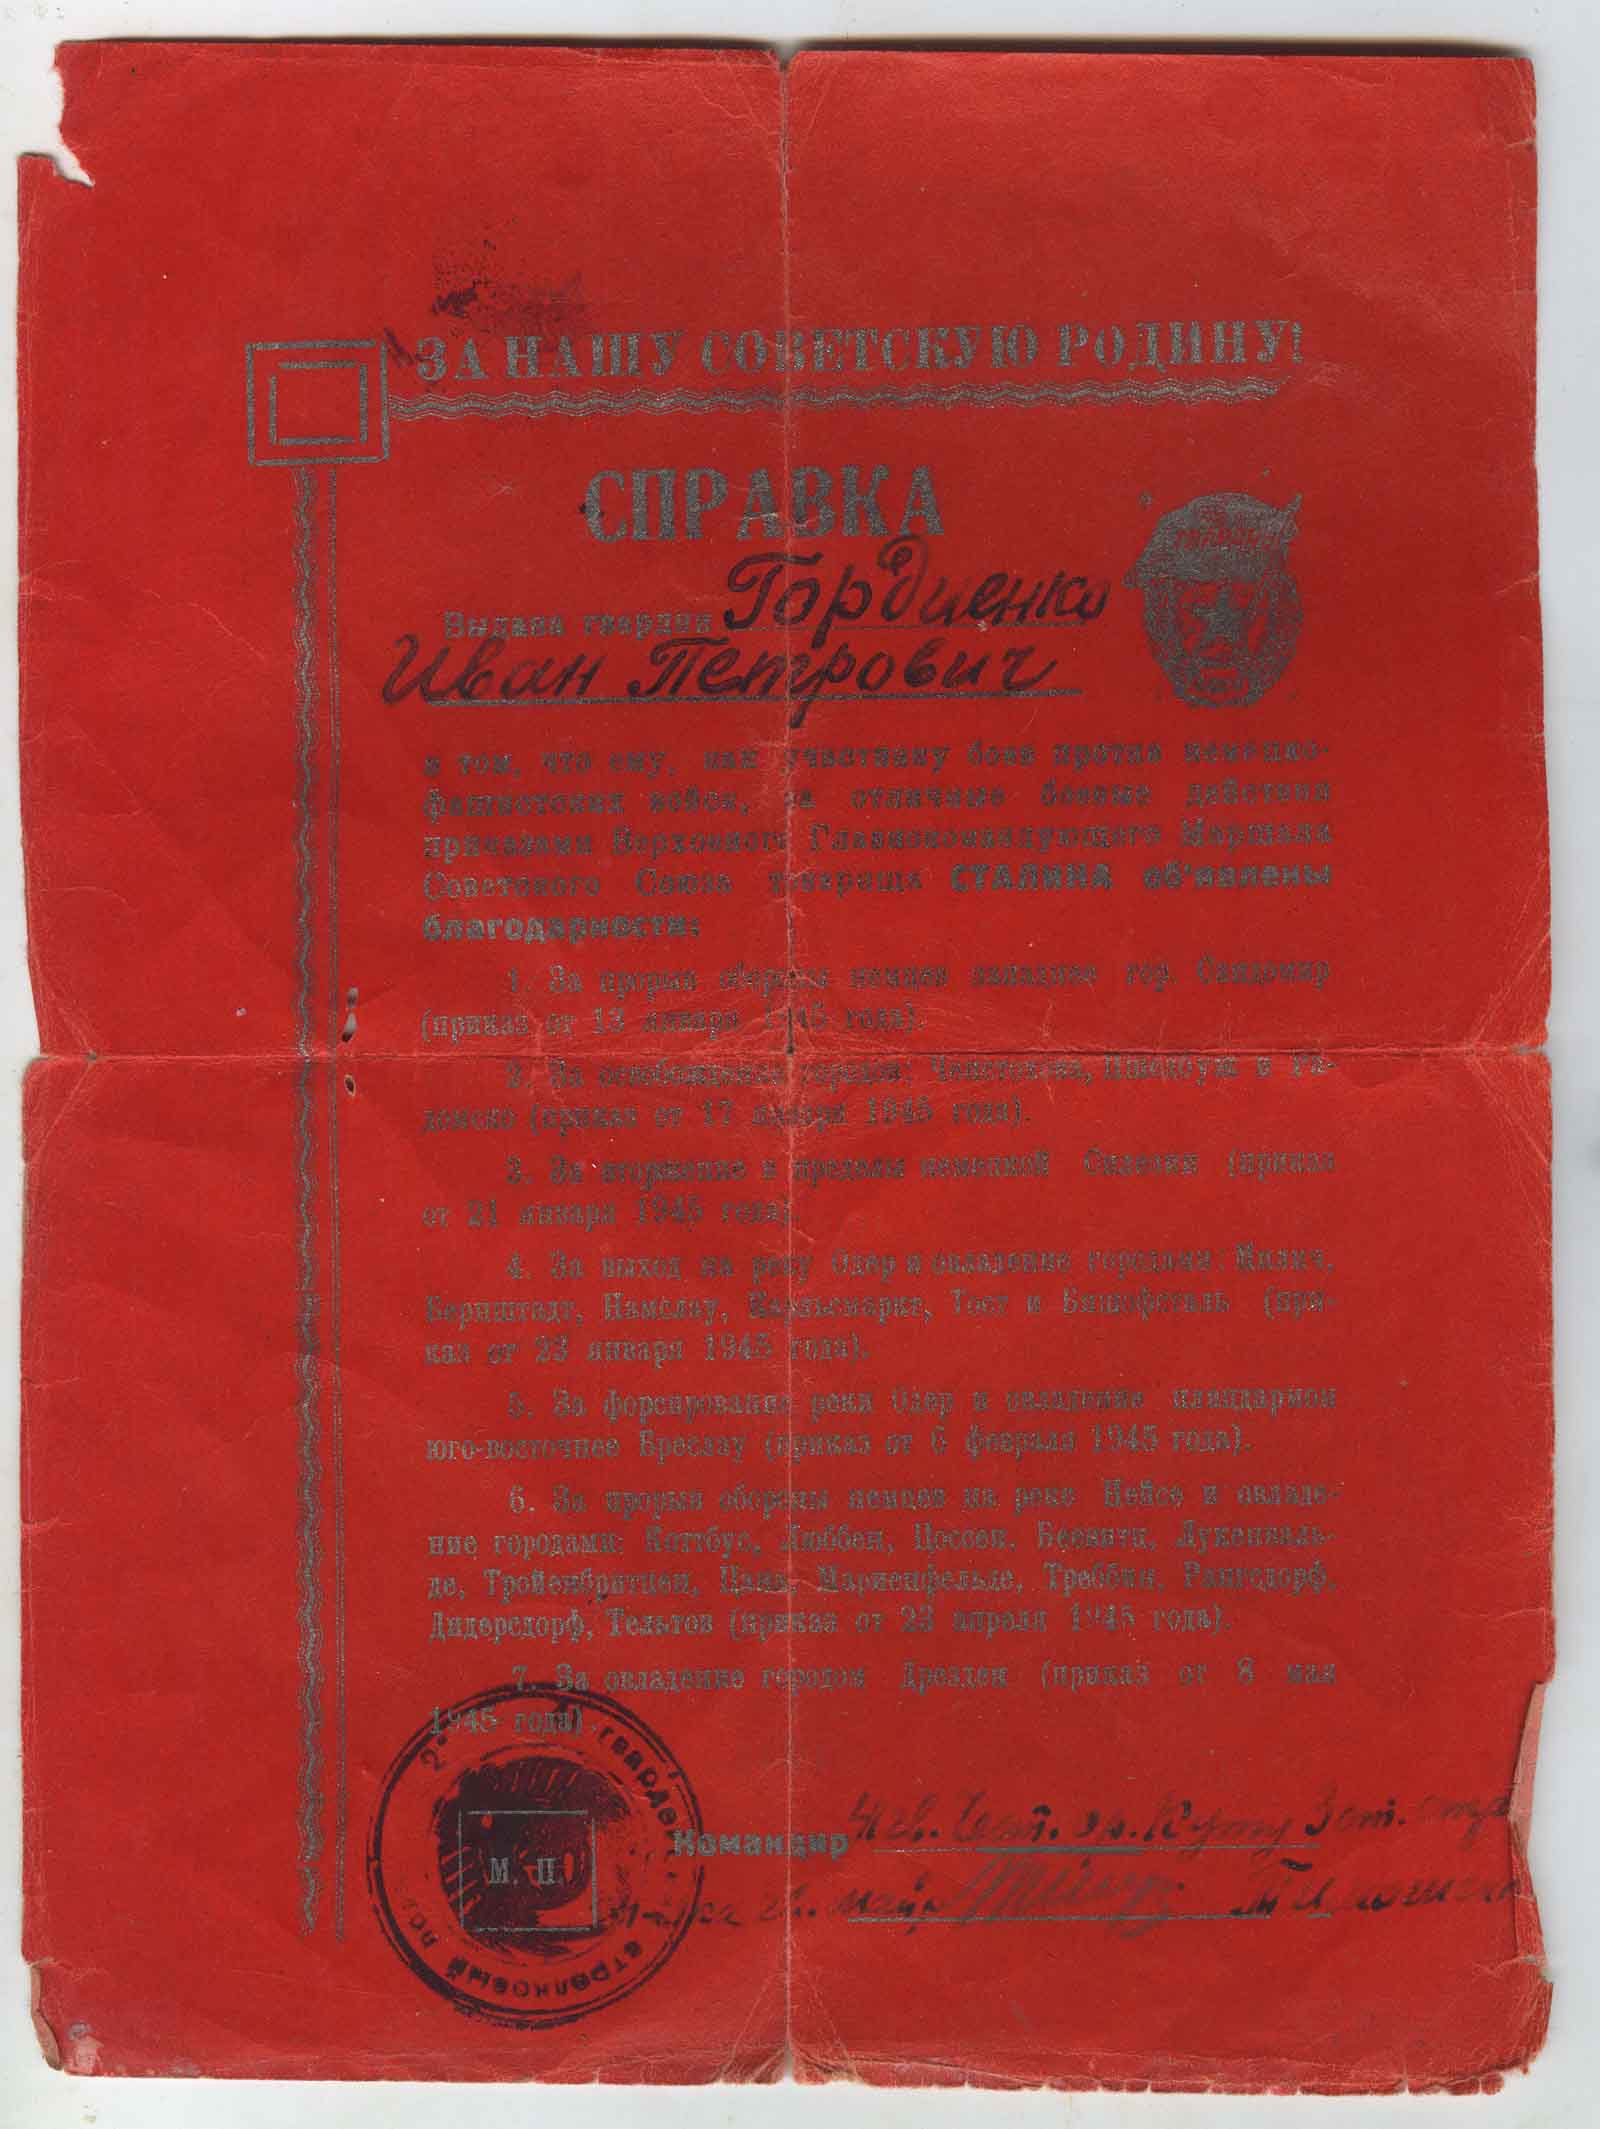 ЗА НАШУ СОВЕТСКУЮ РОДИНУ!
СПРАВКА
Выдана гвардии Гордиенко
Иван Петрович
в том, что ему, как участнику боев против немецко-
фашистских войск, за отличные боевые действия
приказами Верховного Главнокомандующего Маршала
Советского Союза товарища СТАЛИНА об'явлены
благодарности:
1. За прорыв обороны немцев западнее гор. Сандомир
(приказ от 13 января 1945 года).
2. За освобождение городов: Ченстохова, Пшедбуж и Ра-
домско (приказ от 17 января 1945 года).
3. За вторжение в пределы немецкой Силезии (приказ
от 21 января 1945 года).
4. За выход на реку Одер и овладение городами: Милич,
Бернштадт, Намслау, Карльсмаркт, Тост и Бишофсталь (при-
каз от 23 января 1945 года).
5. За форсирование реки Одер и овладение плацдармом
юго-восточнее Бреслау (приказ от 6 февраля 1945 года).
6. За прорыв обороны немцев на реке Нейсе и овладе-
ние городами: Коттбус, Люббен, Цоссен, Беевитц, Лукенваль-
де, Тройенбритцен, Цана, Мариенфельде, Треббин, Рангсдорф,
Дидерсдорф, Тельтов (приказ от 23 апреля 1945 года).
7. За овладение городом Дрезден (приказ от 8 мая
1945 года).
Командир
М. П.
стрелковый